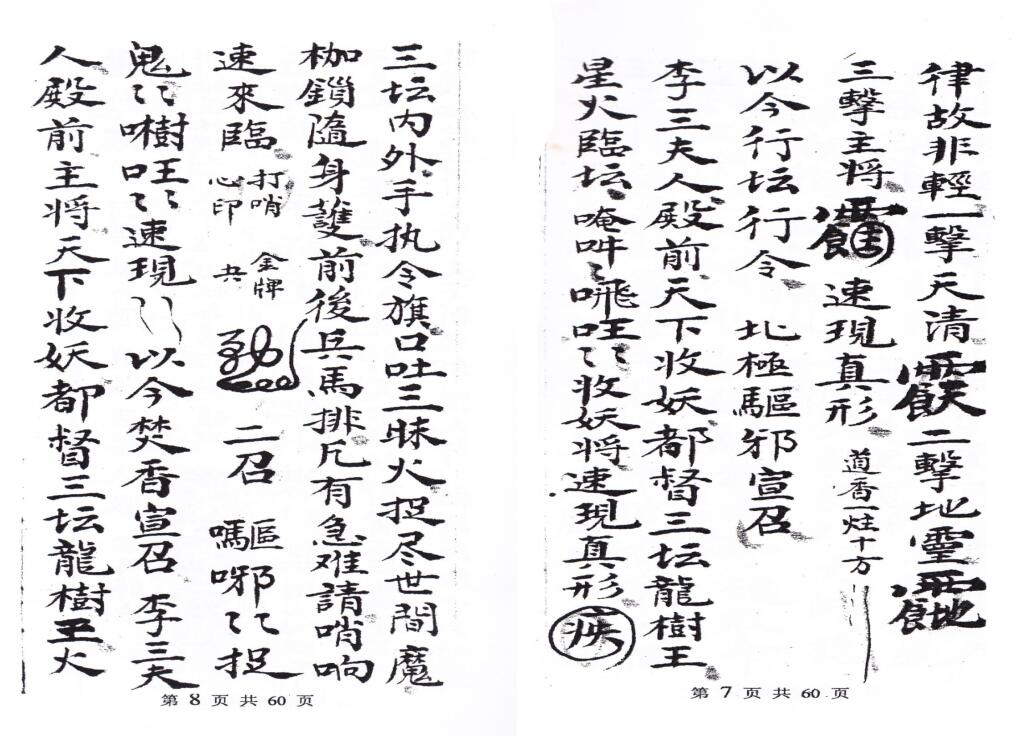 律故非輕一擊天清 二擊地靈
三擊主將 速現真形 道香一炷十方
以今行坛行令 北極驅邪宣召
李三夫人殿前天下收妖都督三坛龍樹王
星火臨坛唵吽〻𠺗呕〻收妖将速現真形 疾
第 7 页 共 60 页
三坛内外手执令旗口吐三昧火捉尽世間魔
枷鎖隨身護前後兵馬排凡有急难請哨响
速來臨 打哨 心印 金牌 共 二召 驅邪〻捉
鬼〻速現 以今焚香宣召 李三夫
人殿前主将天下收妖都督三坛龍樹王火
第 8 页 共 60 页